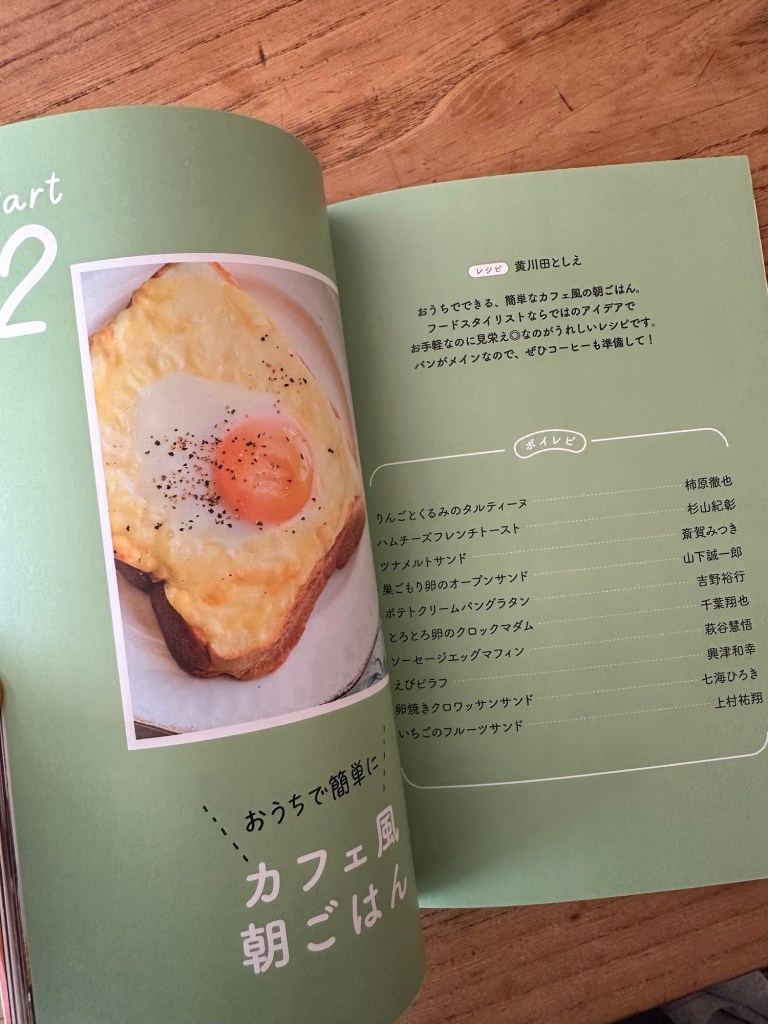 art
2
おうちで簡単に
カフェ風
朝ごはん
レシピ 黄川田としえ
おうちでできる、簡単なカフェ風の朝ごはん。
フードスタイリストならではのアイデアで
お手軽なのに見栄え◎なのがうれしいレシピです。
パンがメインなので、ぜひコーヒーも準備して！
ボイレピ
りんごとくるみのタルティーヌ 柿原徹也
ハムチーズフレンチトースト 杉山紀彰
ツナメルトサンド 斎賀みつき
巣ごもり卵のオープンサンド 山下誠一郎
ポテトクリームパングラタン 吉野裕行
とろとろ卵のクロックマダム 千葉翔也
ソーセージエッグマフィン 萩谷慧悟
えびピラフ 興津和幸
卵焼きクロワッサンサンド 七海ひろき
いちごのフルーツサンド 上村祐翔